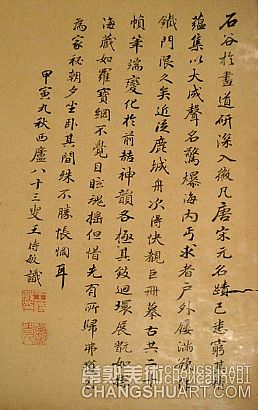 石谷於畫道研深入微凡唐宋元名蹟已悉窮其
蘊集以大成聲名驚爆海內丐求者戶外屨滿
鐵門限久矣近從鹿城舟次得快觀巨冊摹古共二
幀筆端變化於前喆神韻各極其致迴環展翫如
海藏如羅寶網不覺目眩魂搖但惜先有所歸弗
為家秘朝夕坐卧其間殊不勝悵惘耳
甲寅九秋西廬八十三叟王時敏識